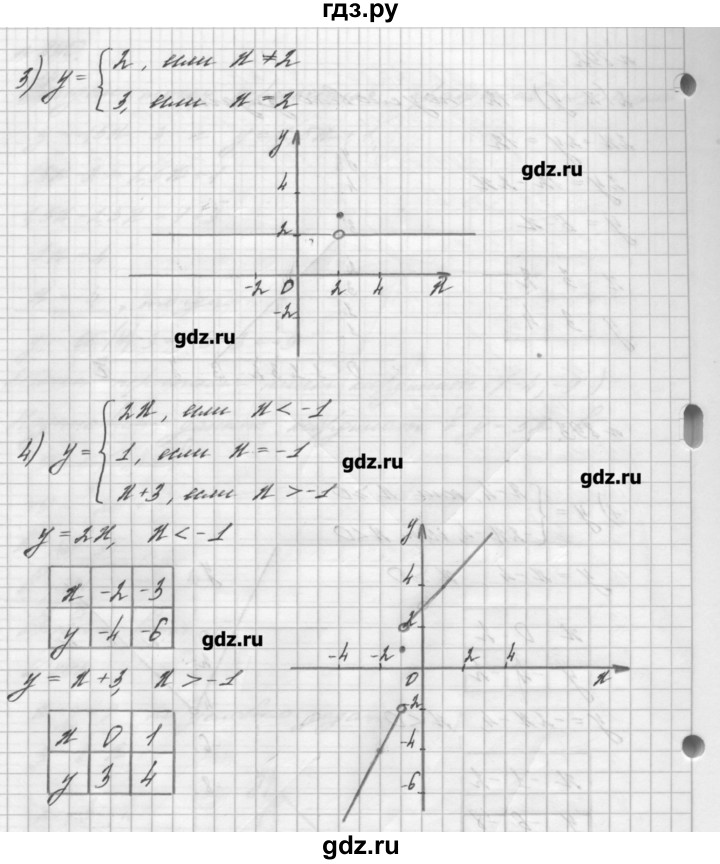 гдз.ру
3) y = { 2, если x ≠ 2
3, если x = 2
y
gdz.ru
4
2
-2 0 2 4 x
-2
gdz.ru
4) y = { 2x, если x < -1
1, если x = -1
x+3, если x > -1
gdz.ru
gdz.ru
y = 2x, x < -1
x -2 -3
y -4 -6
gdz.ru
y = x+3, x > -1
x 0 1
y 3 4
y
4
2
-4 -2 0 2 4 x
-2
-4
-6
gdz.ru
gdz.ru